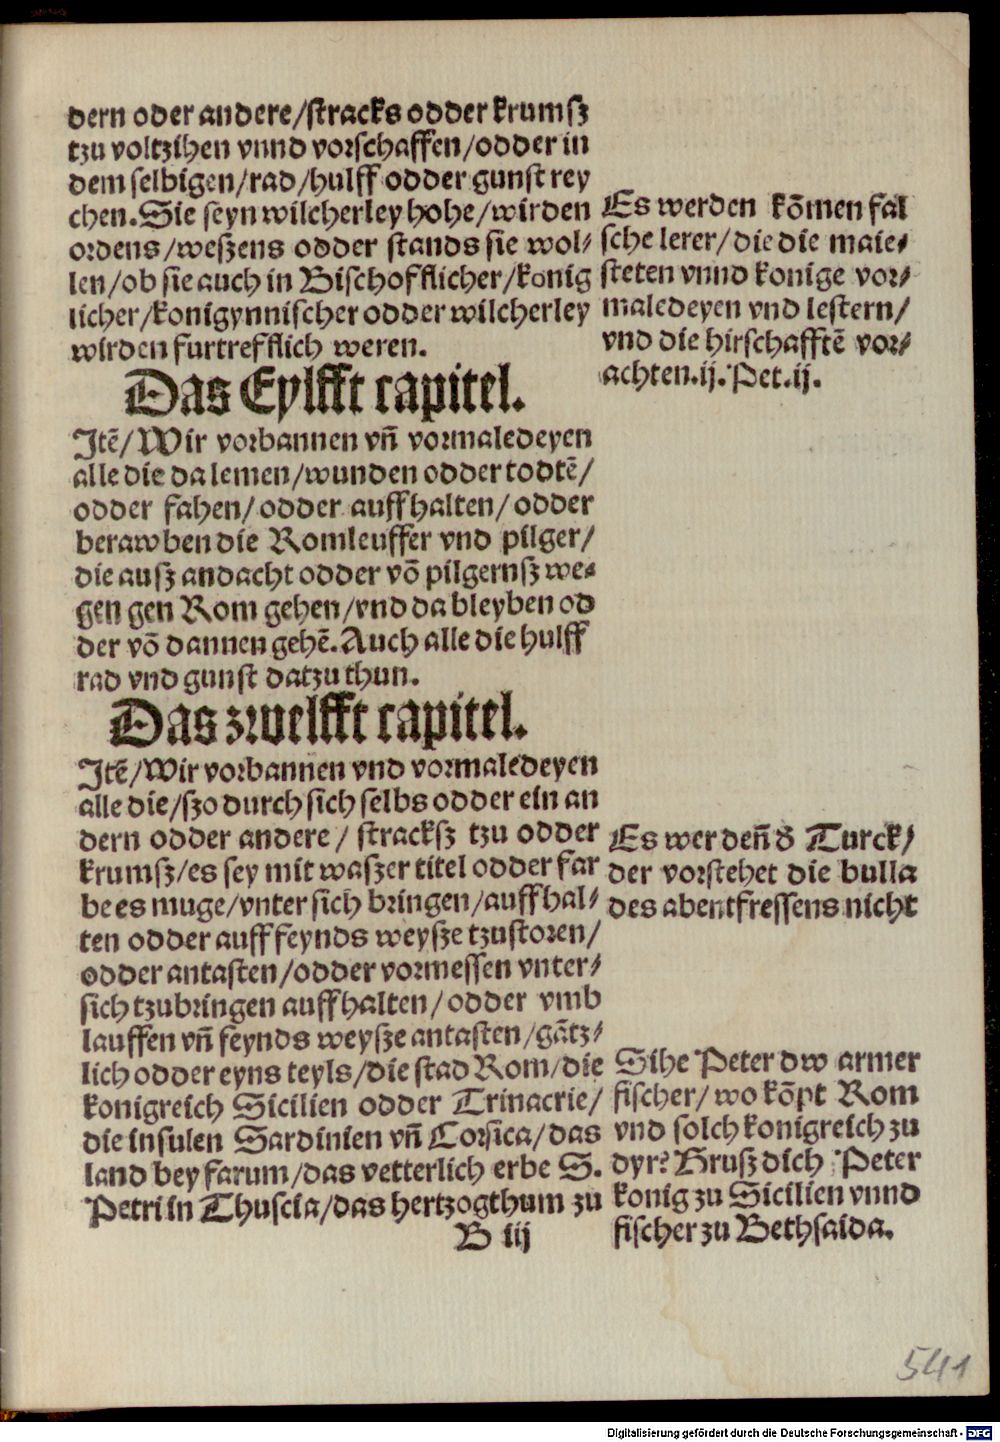 dern oder andere/stracks odder krumsz
tzu voltzihen vnnd vorschaffen/odder in
dem selbigen/rad/hulff odder gunst rey
chen.Sie seyn wilcherley hohe/wirden
ordens/weszens odder stands sie wol⸗
len/ob sie auch in Bischofflicher/konig
licher/konigynnischer odder wilcherley
wirden furtrefflich weren.
Es werden kōmen fal
sche lerer/die die maie⸗
steten vnnd konige vor⸗
maledeyen vnd lestern/
vnd die hirschafftē vor⸗
achten.ij.Pet.ij.
Das Eylfft capitel.
Itē/Wir vorbannen vn̄ vormaledeyen
alle die da lemen/wunden odder todtē/
odder fahen/odder auffhalten/odder
berawben die Romleuffer vnd pilger/
die ausz andacht odder vō pilgernsz we⸗
gen gen Rom gehen/vnd da bleyben od
der vō dannen gehē.Auch alle die hulff
rad vnd gunst datzu thun.
Das zwelfft capitel.
Itē/Wir vorbannen vnd vormaledeyen
alle die/szo durch sich selbs odder ein an
dern odder andere/ stracksz tzu odder
krumsz/es sey mit waszer titel odder far
be es muge/vnter sich bringen/auffhal⸗
ten odder auff feynds weysze tzustoren/
odder antasten/odder vormessen vnter⸗
sich tzubringen auffhalten/odder vmb
lauffen vn̄ feynds weysze antasten/gātz⸗
lich odder eyns teyls/die stad Rom/die
konigreich Sicilien odder Trinacrie/
die insulen Sardinien vn̄ Corsica/das
land bey farum/das vetterlich erbe S.
Petri in Thuscia/das hertzogthum zu
B iij
Es werden̄ d̕ Turck/
der vorstehet die bulla
des abentfressens nicht
Sihe Peter dw armer
fischer/wo kōpt Rom
vnd solch konigreich zu
dyr? Grusz dich Peter
konig zu Sicilien vnnd
fischer zu Bethsaida.
541
Digitalisierung gefördert durch die Deutsche Forschungsgemeinschaft - DFG